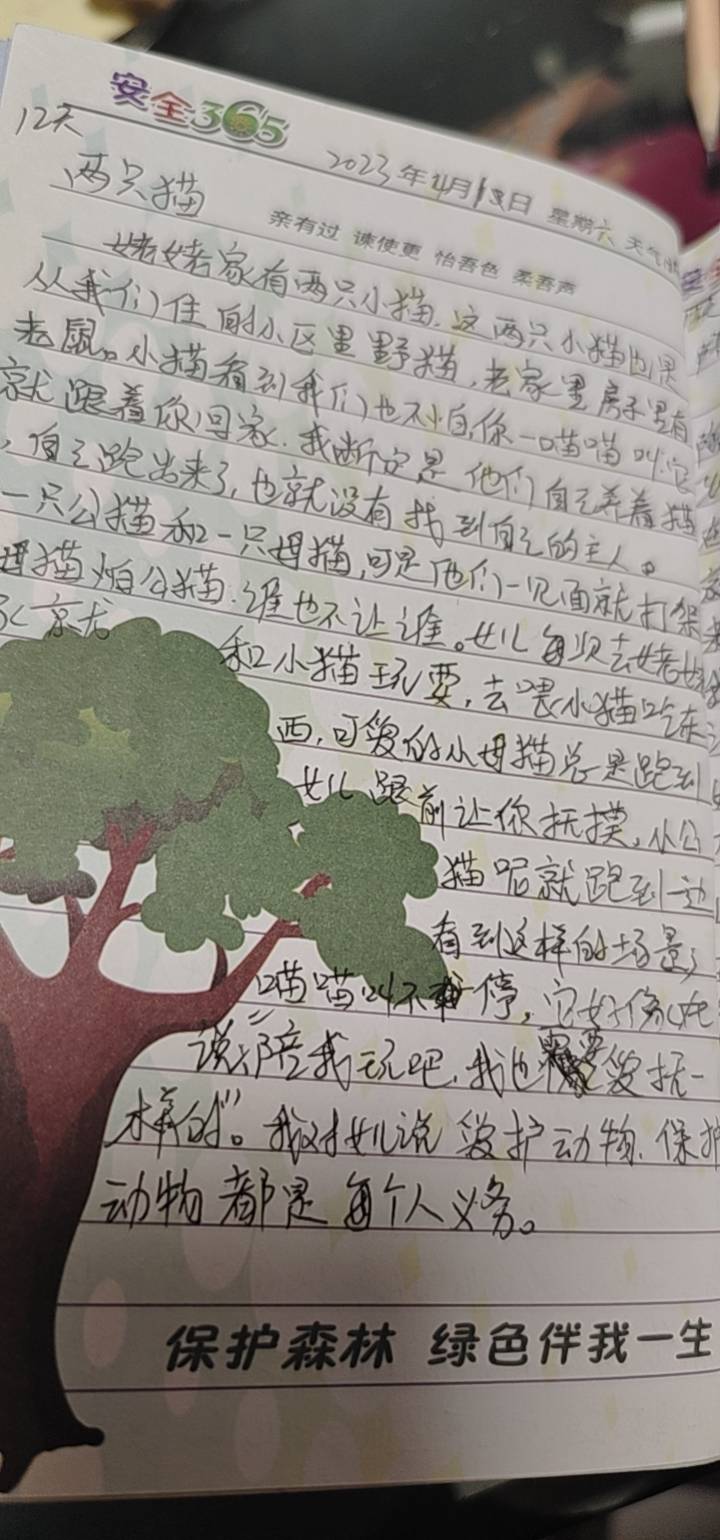 安全365
12天
2023年4月18日 星期六 天气
两只猫
亲有过 谏使更 怡吾色 柔吾声
姥姥家有两只小猫,这两只小猫也是
从我们住的小区里野猫,老家里房子里有
老鼠。小猫看到我们也不怕,你一喵喵叫,它
就跟着你回家.我断定是他们自己养着猫
,自己跑出来了,也就没有找到自己的主人。
一只公猫和一只母猫,可是他们一见面就打架
母猫怕公猫.谁也不让谁。女儿每次去姥姥
家就
和小猫玩耍,去喂小猫吃东
西,可爱的小母猫总是跑到
女儿跟前让你抚摸,小公
猫呢就跑到一边
看到这样的场景,
喵喵叫不停,它好像
说"陪我玩吧,我也需要爱抚一
样的"。我对女儿说爱护动物.保护
动物都是每个人义务。
保护森林 绿色伴我一生